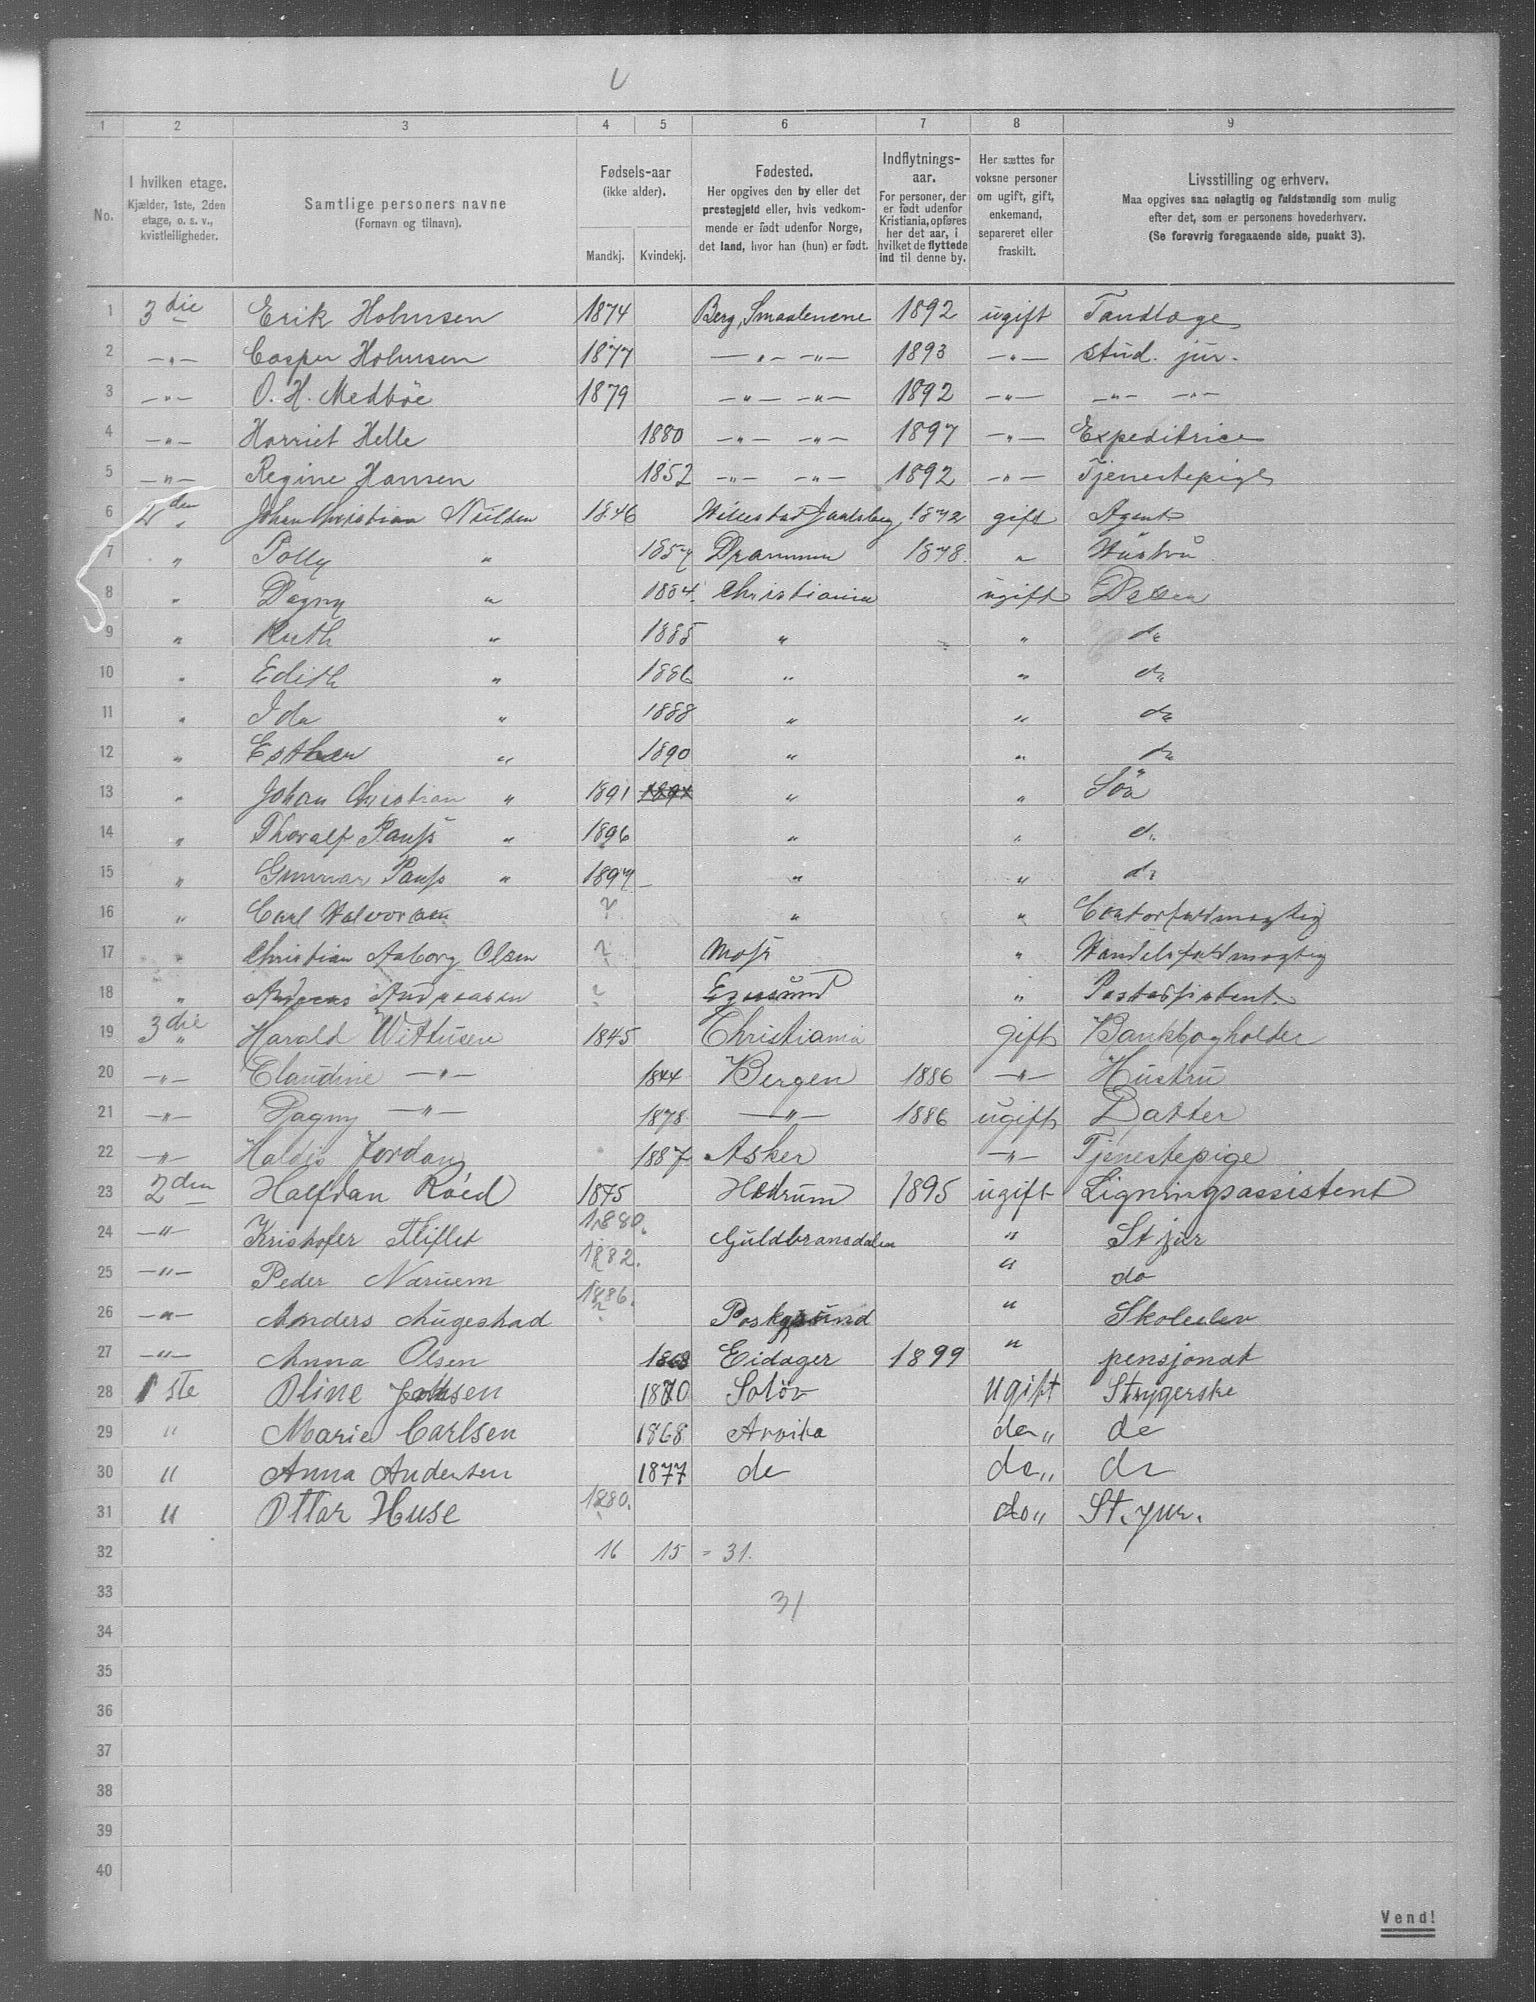 1 2 3 4 5 6 7 8 9
No. I hvilken etage. Kjælder, 1ste, 2den etage, o. s. v., kvistleiligheder. Samtlige personers navne (Fornavn og tilnavn). Fødsels-aar (ikke alder). Mandkj. Kvindekj. Fødested. Her opgives den by eller det prestegjeld eller, hvis vedkommende er født udenfor Norge, det land, hvor han (hun) er født. Indflytnings-aar. For personer, der er født udenfor Kristiania, opføres her det aar, i hvilket de flyttede ind til denne by. Her sættes for voksne personer om ugift, gift, enkemand, separeret eller fraskilt. Livsstilling og erhverv. Maa opgives saa nøiagtig og fuldstændig som mulig efter det, som er personens hovederhverv. (Se forøvrig foregaaende side, punkt 3).
1 3die Erik Holmsen 1874 Berg, Smaalenene 1892 ugift Tandlæge
2 -"- Casper Holmsen 1877 -"- -"- 1893 -"- stud. jur.
3 -"- O. H. Medböe 1879 -"- -"- 1892 -"- -"- -"-
4 -"- Harriet Helle 1880 -"- -"- 1897 -"- Expeditrice
5 -"- Regine Hansen 1852 -"- -"- 1892 -"- Tjenestepige
6 den " Johan Christian Neilsen 1846 1872 gift Agent
7 " Polly " 1857 Drammen 1878. " Hustru
8 " Dagny " 1884. Christiania ugift
9 " Ruth " 1885 " " do
10 " Edith " 1886 " " do
11 " Ida " 1888 " " do
12 " Esther " 1890 " " do
13 " Johan Christian " 1891 1891 " " Sön
14 " Thoralf Pauss " 1896 " " do
15 " Gunnar Pauss " 1897 " " do
16 " Carl Halvorsen ? " " Contorfuldmægtig
17 " Christian Aaborg Olsen ? Moss " Handelsfuldmægtig
18 " Andreas Andreasen ? Egersund " Postassistent
19 3die " Harald Wittusen 1845 Christiania gift Bankbogholder
20 -"- Claudine -"- 1844 Bergen 1886 -"- Hustru
21 -"- Dagny -"- 1878 -"- 1886 ugift Datter
22 -"- Haldis Jordan 1887 Asker -"- Tjenestepige
23 2den Halfdan Röed 1875 Hedrum 1895 ugift Ligningsassistent
24 -"- Kristofer 1880. Guldbransdalen " St jur
25 -"- Peder 1882. " do
26 -"- Anders Augestad 1886. Poskgrund " Skoleelev
27 -"- Anna Olsen 1868 Eidager 1899 " pensjonat
28 1ste Oline 1870 Solör Ugift Strygerske
29 " Marie Carlsen 1868 Arvika do " do
30 " Anna Andersen 1877 do do " do
31 " Ottar Huse 1880. do " St. jur.
32 16 15 = 31.
33 31
34
35
36
37
38
39
40
Vend!